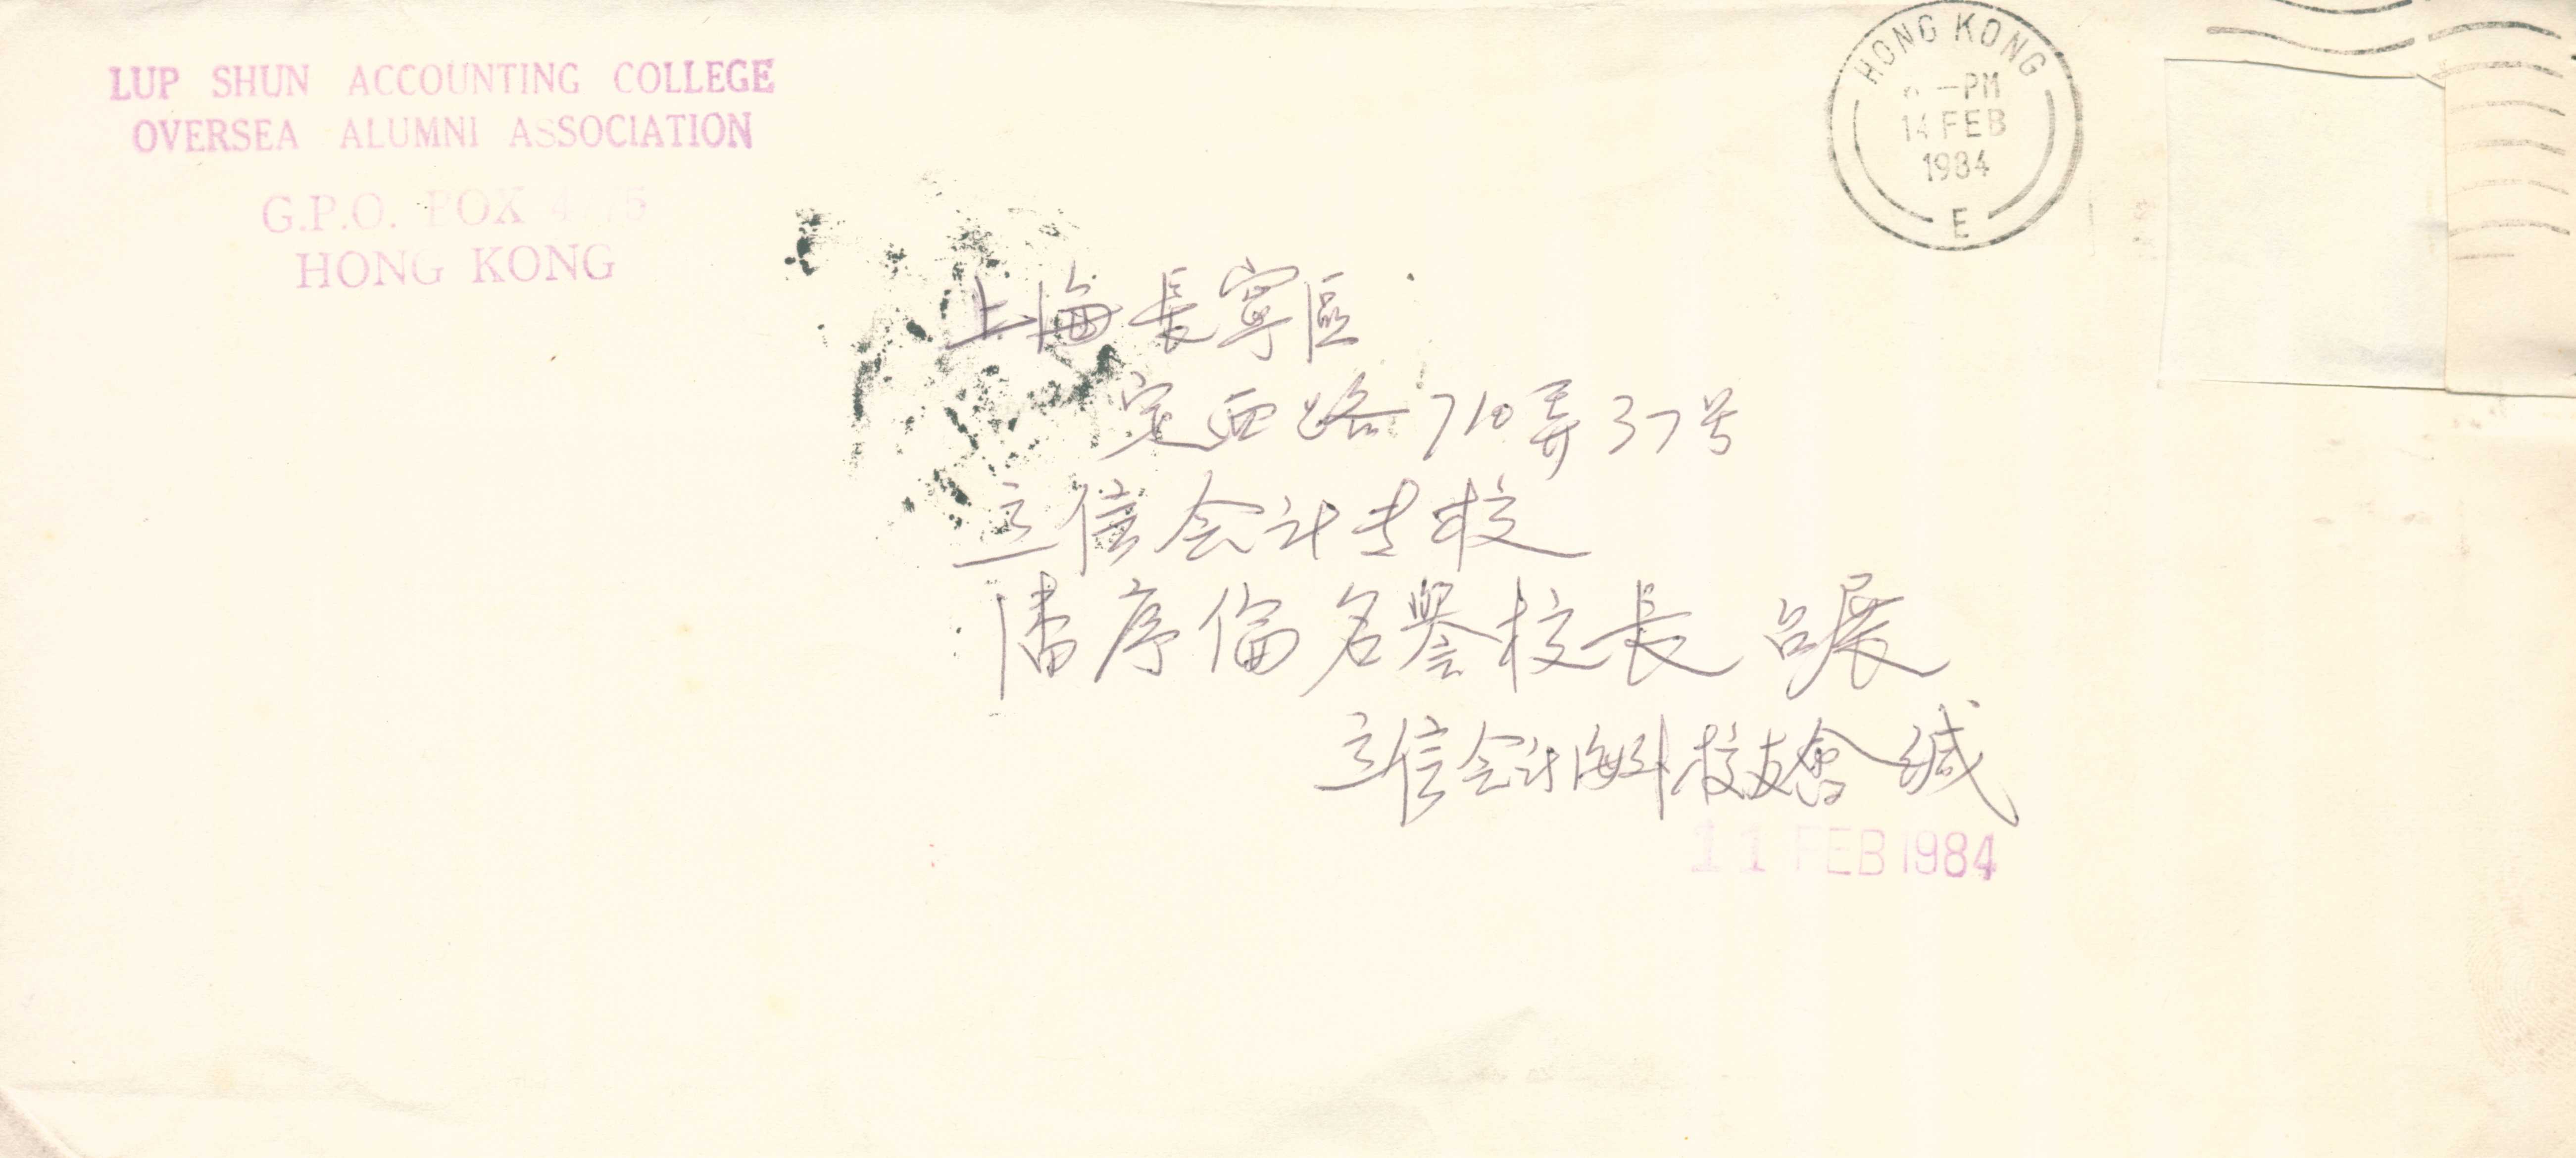 LUP SHUN ACCOUNTING COLLEGE
OVERSEA ALUMNI ASSOCIATION
G.P.O. BOX
HONG KONG
HONG KONG
PM
14 FEB
1984
E
上海長寧區
定西路710弄37号
立信会计专校
潘序倫名譽校長 台展
立信会计海外校友會 缄
11 FEB 1984